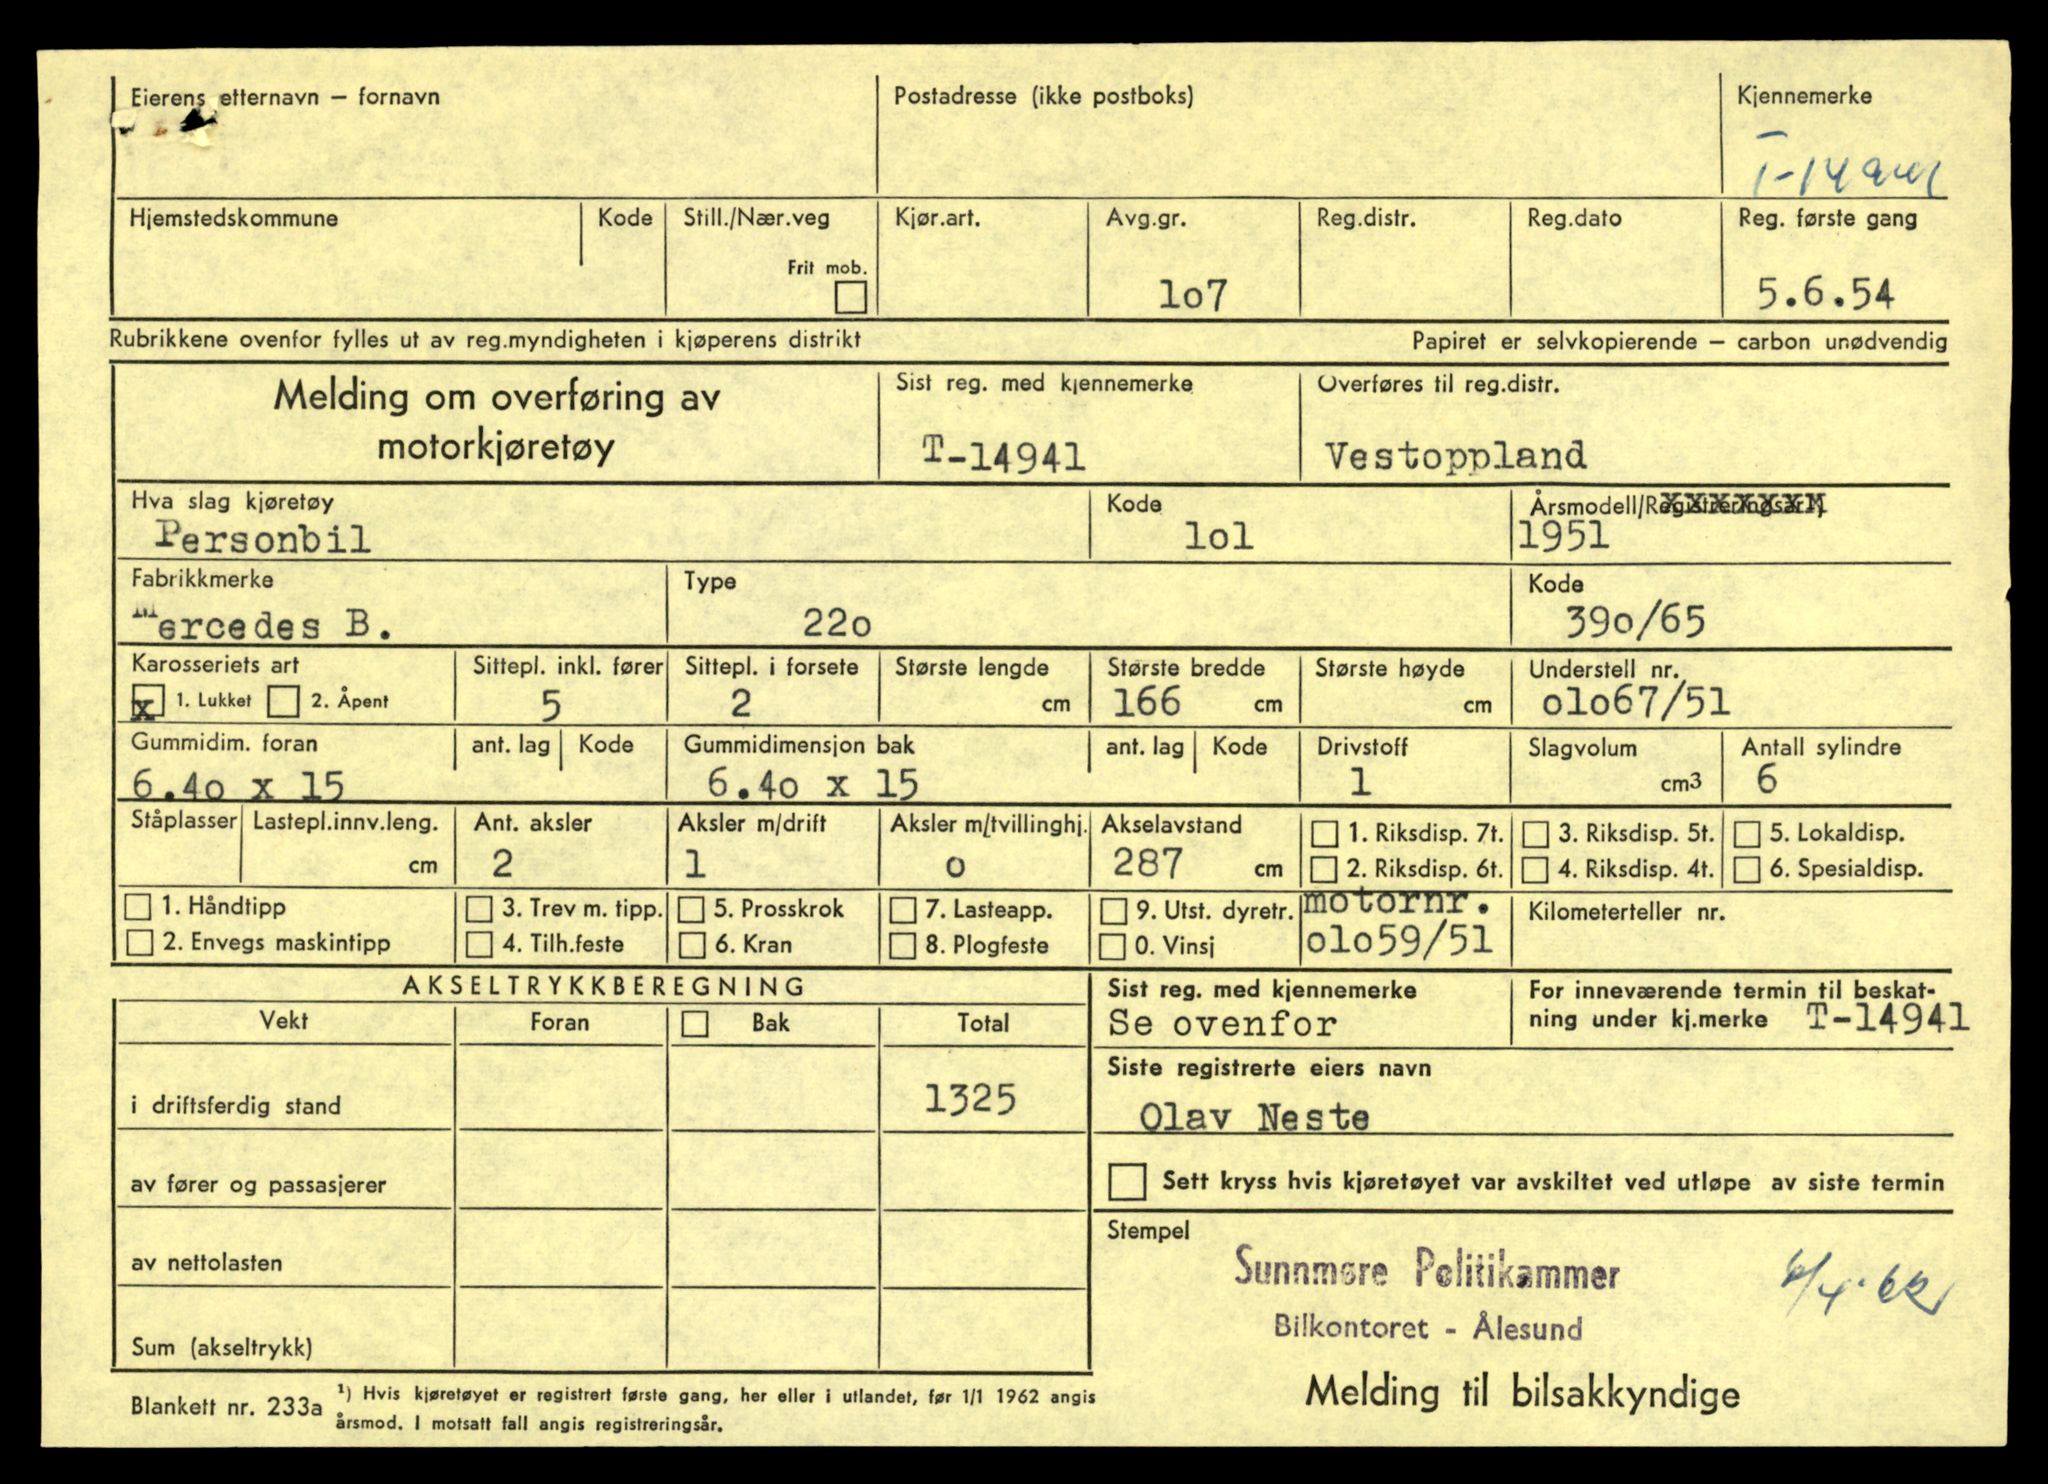 Eierens etternavn – fornavn
Postadresse (ikke postboks)
Kjennemerke
T-14941
Hjemstedskommune
Kode
Still./Nær.veg
Frit mob.
Kjør.art.
Avg.gr.
lo7
Reg.distr.
Reg.dato
Reg. første gang
5.6.54
Rubrikkene ovenfor fylles ut av reg.myndigheten i kjøperens distrikt
Papiret er selvkopierende – carbon unødvendig
Melding om overføring av
motorkjøretøy
Sist reg. med kjennemerke
T-14941
Overføres til reg.distr.
Vestoppland
Hva slag kjøretøy
Personbil
Kode
lol
Årsmodell/Registreringsår
1951
Fabrikkmerke
Mercedes B.
Type
22o
Kode
39o/65
Karosseriets art
x 1. Lukket 2. Åpent
Sittepl. inkl. fører
5
Sittepl. i forsete
2
Største lengde
cm
Største bredde
166 cm
Største høyde
cm
Understell nr.
olo67/51
Gummidim. foran
6.4o x 15
ant. lag
Kode
Gummidimensjon bak
6.4o x 15
ant. lag
Kode
Drivstoff
1
Slagvolum
cm3
Antall sylindre
6
Ståplasser
Lastepl.innv.leng.
cm
Ant. aksler
2
Aksler m/drift
1
Aksler m/tvillinghj.
o
Akselavstand
287 cm
1. Riksdisp. 7t.
2. Riksdisp. 6t.
3. Riksdisp. 5t.
4. Riksdisp. 4t.
5. Lokaldisp.
6. Spesialdisp.
1. Håndtipp
2. Envegs maskintipp
3. Trev m. tipp.
4. Tilh.feste
5. Prosskrok
6. Kran
7. Lasteapp.
8. Plogfeste
9. Utst. dyretr.
0. Vinsj
motornr.
olo59/51
Kilometerteller nr.
AKSELTRYKKBEREGNING
Vekt
Foran
Bak
Total
i driftsferdig stand
1325
av fører og passasjerer
av nettolasten
Sum (akseltrykk)
Sist reg. med kjennemerke
Se ovenfor
For inneværende termin til beskat-
ning under kj.merke T-14941
Siste registrerte eiers navn
Olav Neste
Sett kryss hvis kjøretøyet var avskiltet ved utløpe av siste termin
Stempel
Sunnmøre Politikammer
Bilkontoret - Ålesund
Melding til bilsakkyndige
Blankett nr. 233a
¹) Hvis kjøretøyet er registrert første gang, her eller i utlandet, før 1/1 1962 angis
årsmod. I motsatt fall angis registreringsår.